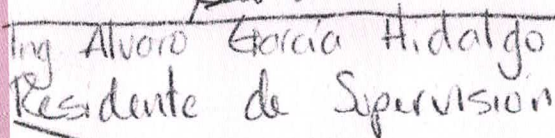 Ing Alvaro García Hidalgo
Residente de Supervisión